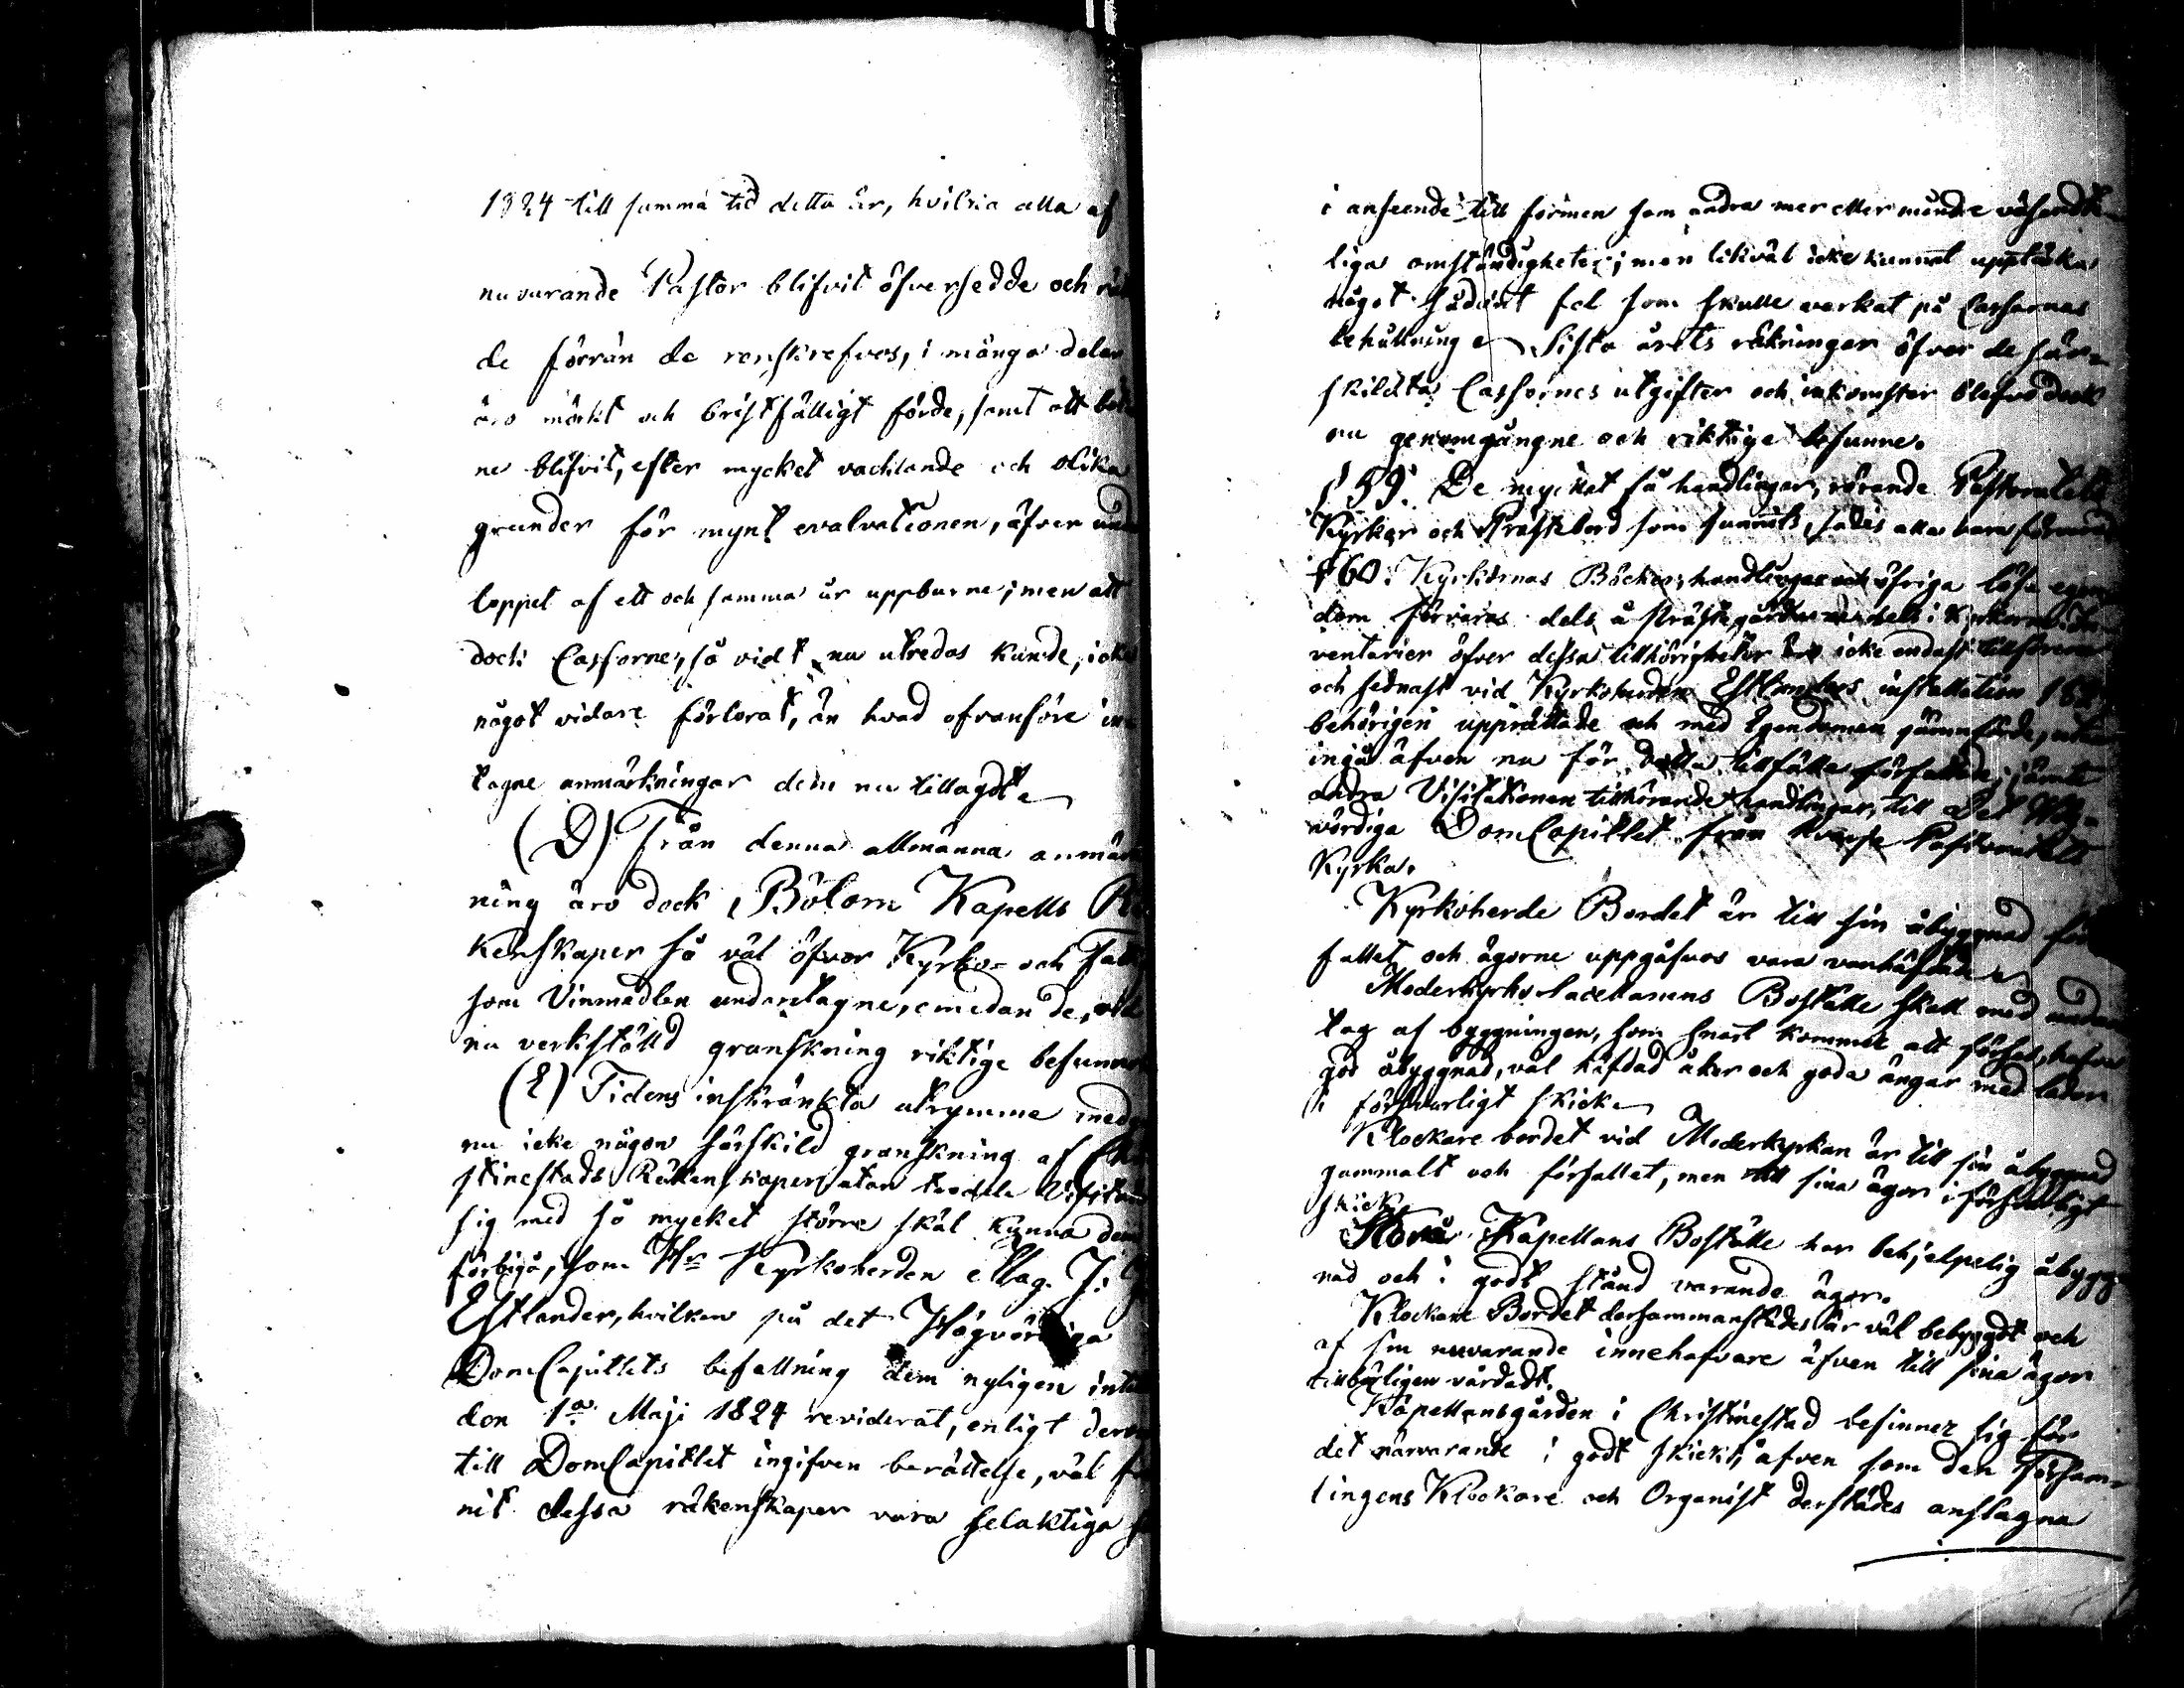 1824 till samma tid detta år, hvilka alla af
nuvarande Pastor blifvit öfversedde och
de förrän de renskrefvos, i många delar
äro mörkt och bristfälligt förde, samt att
ne blifvit, efter mycket vacklande och olika
grunder för mynt evalvationen, äfven
loppet af ett och samma år uppburne; men att
dock Cassorne, så vidt nu utredas kunde, icke
något vidare förlorat, än hvad ofvanföre in
tagne anmärkningar dem nu tillagdt
(D) Från denna allmänna anmärk
ning äro dock Bötom Kapells Rä
kenskaper så väl öfver Kyrko- och
som Vinmedlen undantagne, emedan de, vid
nu verkställd granskning riktige befunnos
(E) Tidens inskränkta utrymme
nu icke någon särskild granskning af Chri
stinestads Räkenskaper utan trodde
sig med så mycket större skäl kunna dem
förbigå, som Hr Kyrkoherden Mag. J:
Estlander, hvilken på det Högvördiga
DomCapitlets befallning dem nyligen intill
den 1a Maji 1824 reviderat, enligt derom
till DomCapitlet ingifven berättelse, väl fun
nit dessa räkenskaper vara felaktiga
i anseende till formen som andra mer eller mindre väsendt
liga omständigheter; men likväl icke kunnat upptäcka
något sådant fel som skulle verkat på Cassornas
behållning Sista årets räkningar öfver de sär-
skildta Cassornes utgifter och inkomster blefvo dock
nu genomgångne och riktige befunne.
§ 59. De mycket få handlingar, rörande Pastoratets
Kyrkor och Prästebord som funnits, sades alla vara
§ 60. Kyrkornas Böcker, handlingar och öfriga lösa egen
dom förvaras dels å Prästegården dels i Kyrkorne.
ventarier öfver dessa tillhörigheter äro icke endast tillförene
och sednast vid Kyrkoherden Estlanders installation
behörigen upprättade och med Egendomen jämnförde, utan
ingå äfven nu för detta tillfälle författade, jämte
andra Visitationen tillhörande handlingar, till Det Hög-
vördiga DomCapitlet från Pastoratets
Kyrka.
Kyrkoherde Bordet är till sin åbyggnad för
fallet och ägorne uppgåfvos vara vanhäfdade
Moderkyrko Sacellanens Boställe skall med undan
tag af byggningen, som snart kommer att förses, hafva
god åbyggnad, väl häfdad åker och goda ängar med lador
i försvarligt skick
Klockare bordet vid Moderkyrkan är till sin åbyggnad
gammalt och förfallet, men till sina ägor i försvarligt
skick
Storå Kapellans Boställe har behjelpelig åbygg
nad och i godt stånd varande ägor.
Klockare Bordet dersammanstädes är väl bebyggdt och
af sin nuvarande innehafvare äfven till sina ägor
tillbörligen vårdadt.
Kapellansgården i Christinestad befinner sig för
det närvarande i godt skick, äfven som den Försam-
lingens Klockare och Organist derstädes anslagna